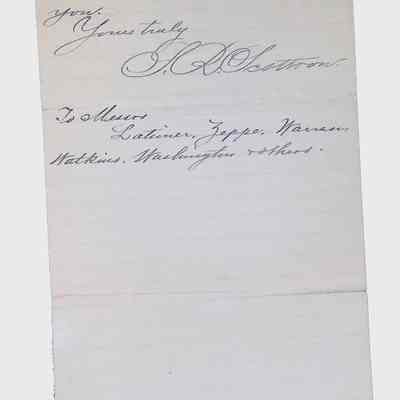 you.
Yours truly
To Messrs
Latimer, Zeppe, Warren,
Watkins, Washington & others.